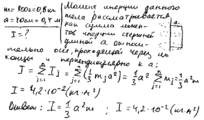 m = 800г = 0,8 кг
a = 40см = 0,4 м
I = ?
Момент инерции данного
тела рассматривается
как сумма момен-
тов инерции стержней
длиной a относи-
тельно оси, проходящей через их
концы и перпендикулярно к a:
I = Σ I_j = Σ (1/3 m_j a²) = 1/3 a² Σ m_j = 1/3 a² m
I = 4,2·10⁻² (кг·м²)
Ответ: I = 1/3 a² m ; I = 4,2·10⁻² (кг·м²)